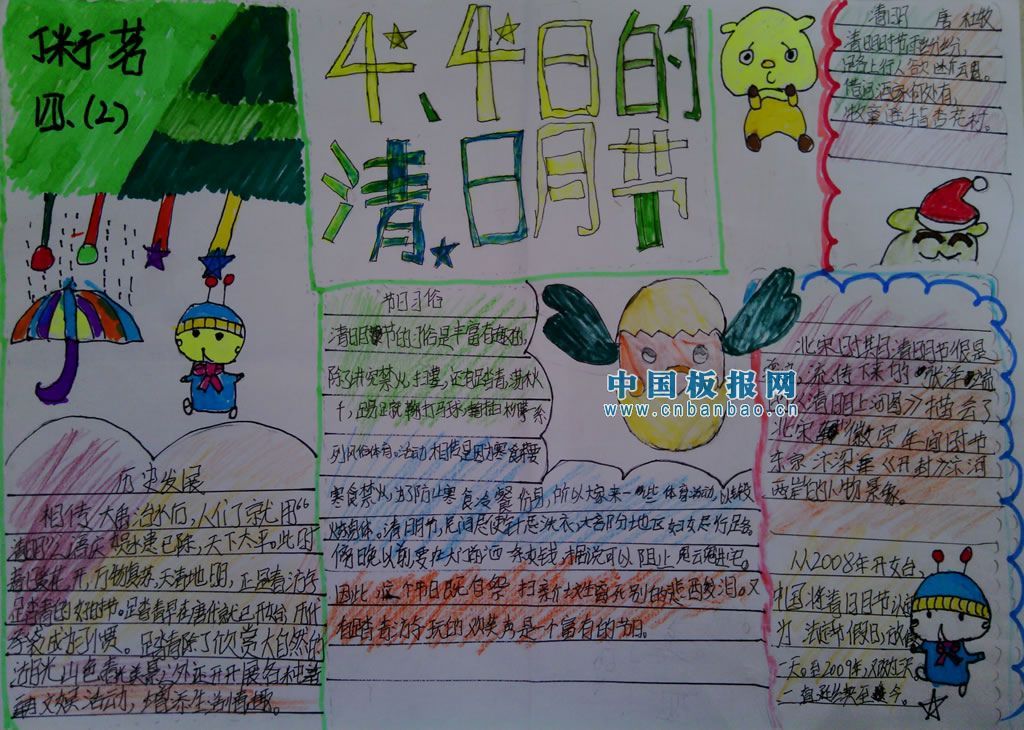 四.(2)
4.4日的
清明节
清明 唐 杜牧
清明时节雨纷纷,
路上行人欲断魂。
借问酒家何处有,
牧童遥指杏花村。
节日习俗
清明节的习俗是丰富有趣的,
除了讲究禁火扫墓,还有踏青、荡秋
千,蹴鞠打马球,插柳等系
列风俗体育。活动相传是因为寒食节要
寒食禁火,为了防止寒食冷餐伤身,所以大家来一些体育活动,以锻
炼身体。清明节,民间忌使针忌洗衣,大部分地区妇女忌行路。
傍晚以前要在大门前洒一条灰线,据说可以阻止鬼云魂进宅。
因此,这个节日既有祭扫新坟生离死别的悲酸泪。又
有踏青游玩的欢笑声是一个富有的节日。
历史发展
相传,大禹治水后,人们就用"
清明"之语庆贺水患已除,天下太平。此时
春暖花开,万物复苏,天清地明,正是春游
踏青的好时节。踏青早在唐代就已开始,历代
承袭成为习惯。踏青除了欣赏大自然的
湖光山色春光美景之外还开展各种
文娱活动,增添生活情趣。
北宋时期清明节很是
流传下来的张择端
《清明上河图》描绘了
北宋徽宗年间时节
东京汴梁《开封》汴河
两岸的人物景象。
从2008年开始,
中国将清明节
为法定假日,放假
一天。至2009年,又改为三天。
一直延续至今。
中国板报网
www.cnbanbao.cn